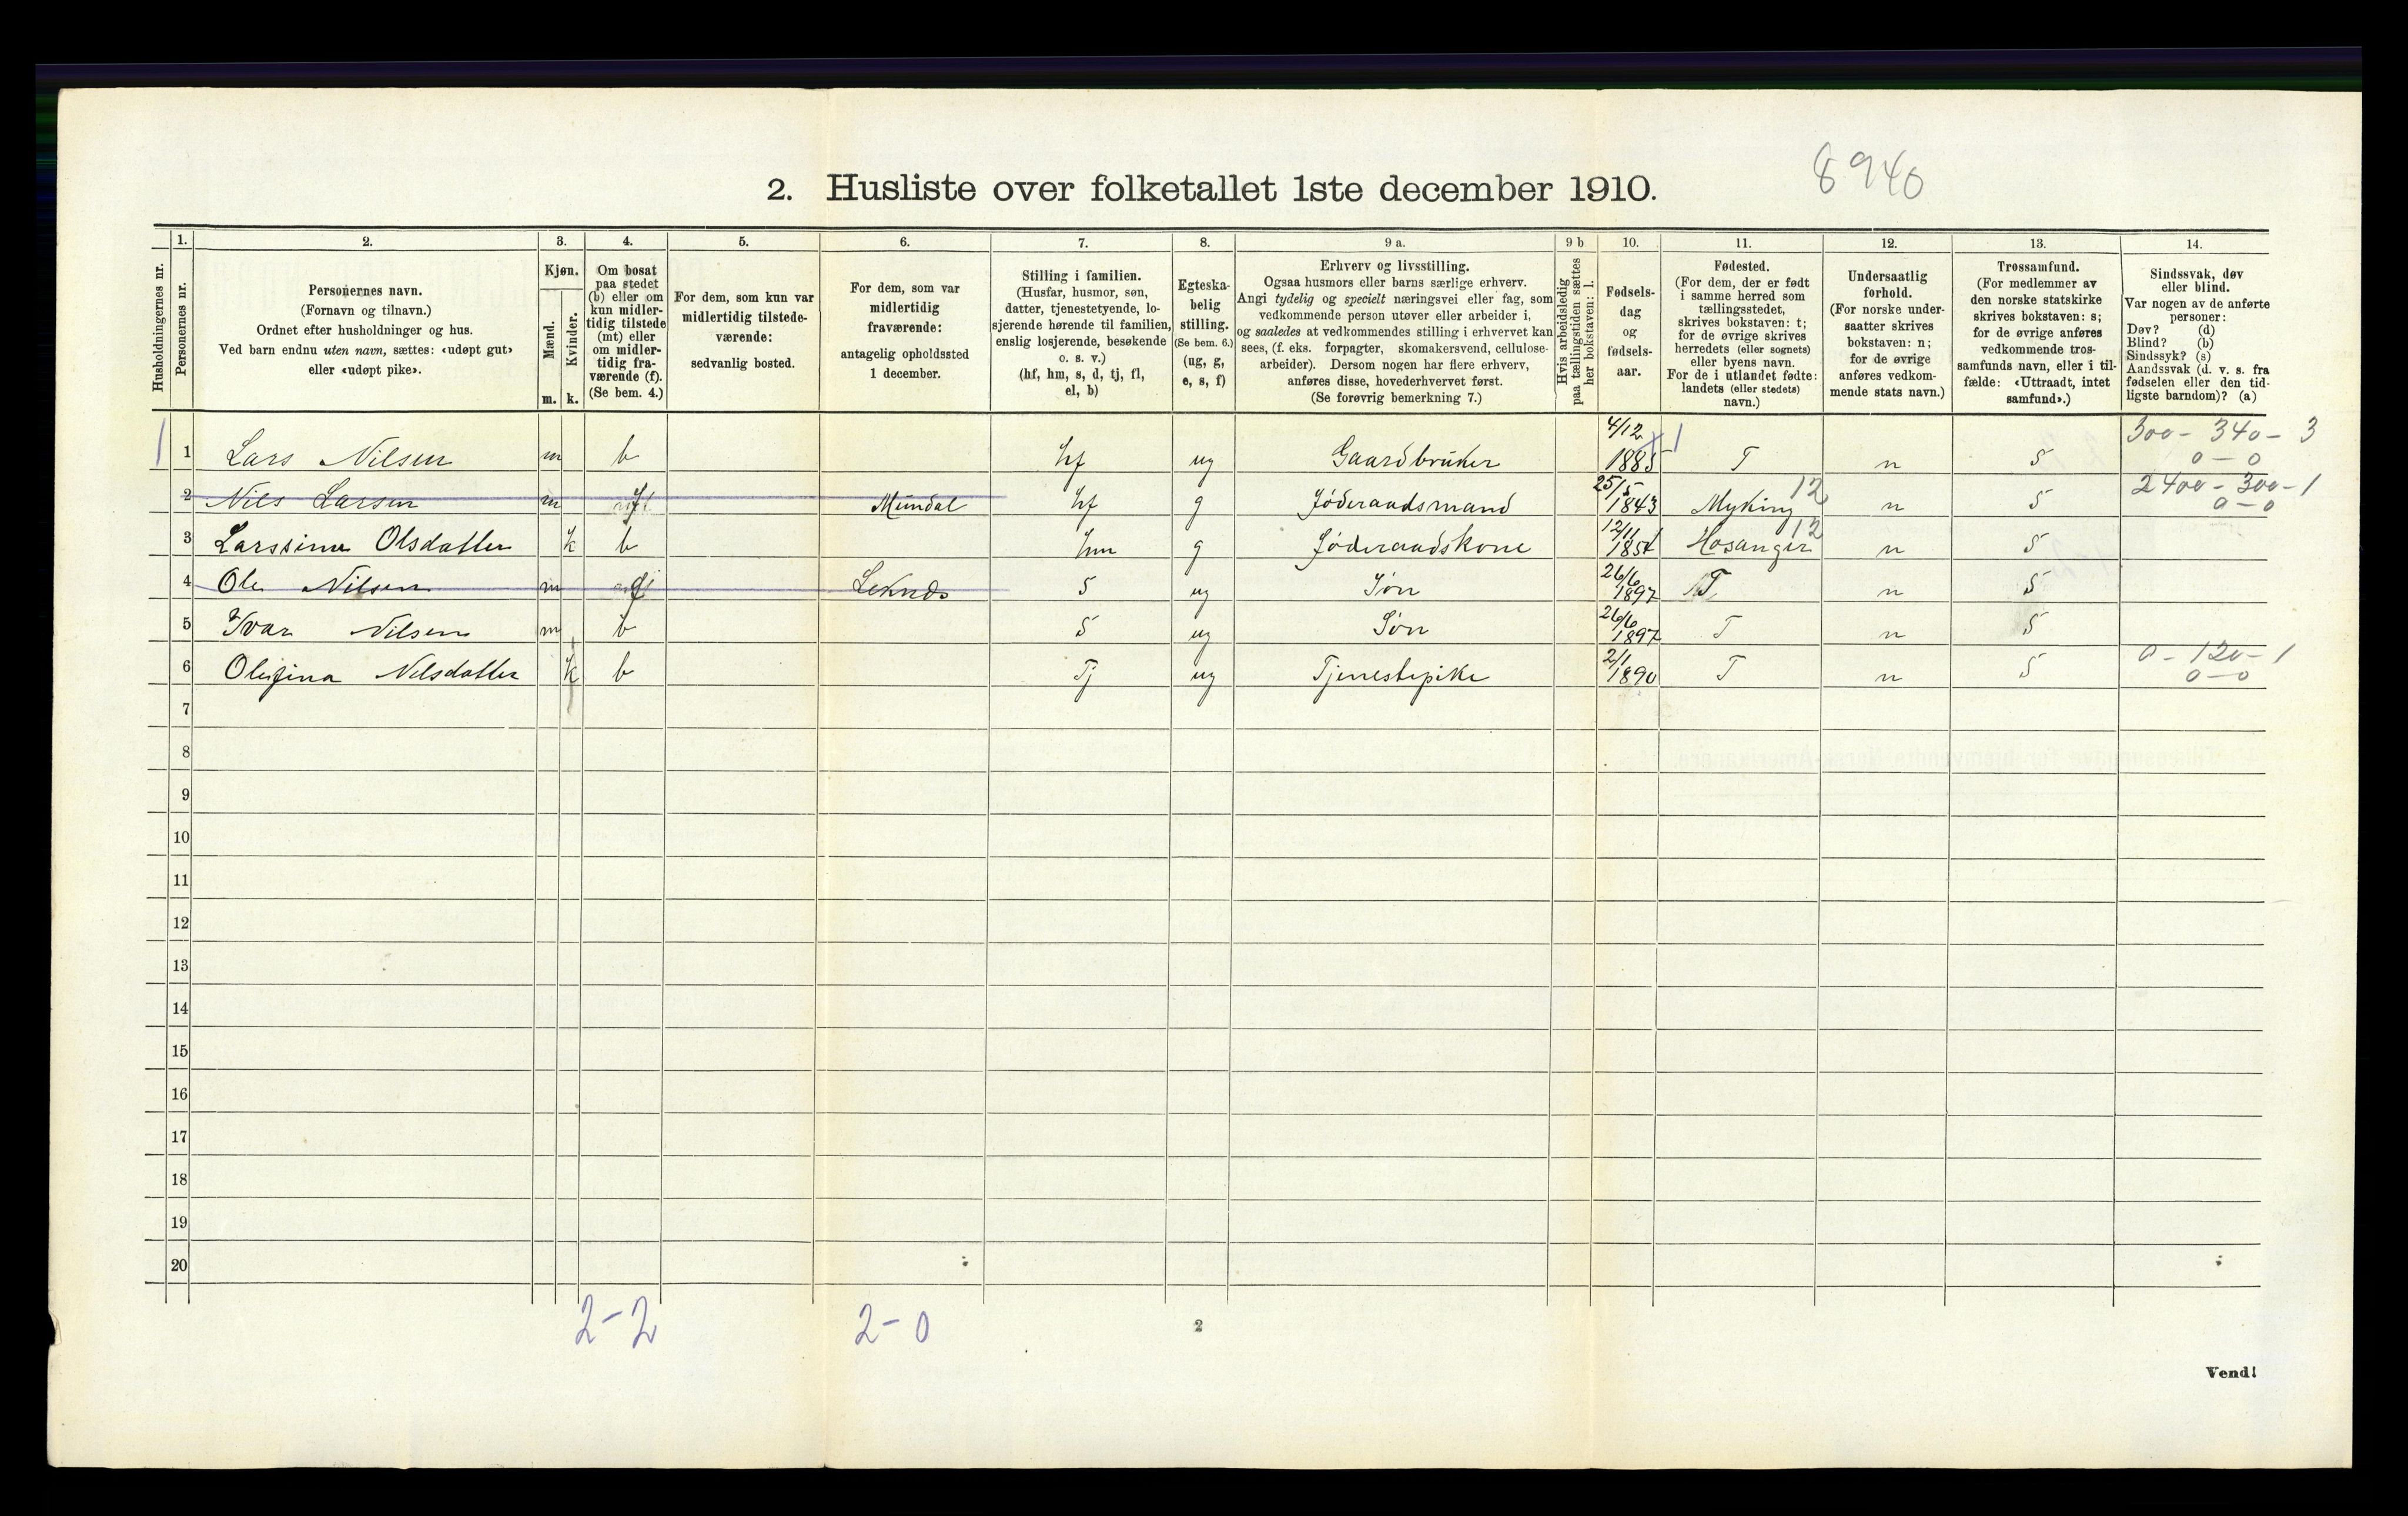 8940
2. Husliste over folketallet 1ste december 1910.
Husholdningernes nr.
1.
Personernes nr.
2.
Personernes navn.
(Fornavn og tilnavn.)
Ordnet efter husholdninger og hus.
Ved barn endnu uten navn, sættes: «udøpt gut»
eller «udøpt pike».
3.
Kjøn.
Mænd.
Kvinder.
m. k.
4.
Om bosat
paa stedet
(b) eller om
kun midler-
tidig tilstede
(mt) eller
om midler-
tidig fra-
værende (f).
(Se bem. 4.)
5.
For dem, som kun var
midlertidig tilstede-
værende:
sedvanlig bosted.
6.
For dem, som var
midlertidig
fraværende:
antagelig opholdssted
1 december.
7.
Stilling i familien.
(Husfar, husmor, søn,
datter, tjenestetyende, lo-
sjerende hørende til familien,
enslig losjerende, besøkende
o. s. v.)
(hf, hm, s, d, tj, fl,
el, b)
8.
Egteska-
belig
stilling.
(Se bem. 6.)
(ug, g,
e, s, f)
9 a.
Erhverv og livsstilling.
Ogsaa husmors eller barns særlige erhverv.
Angi tydelig og specielt næringsvei eller fag, som
vedkommende person utøver eller arbeider i,
og saaledes at vedkommendes stilling i erhvervet kan
sees, (f. eks. forpagter, skomakersvend, cellulose-
arbeider). Dersom nogen har flere erhverv,
anføres disse, hovederhvervet først.
(Se forøvrig bemerkning 7.)
9 b
Hvis arbeidsledig
paa tællingstiden sættes
her bokstaven: l.
10.
Fødsels-
dag
og
fødsels-
aar.
11.
Fødested.
(For dem, der er født
i samme herred som
tællingsstedet,
skrives bokstaven: t;
for de øvrige skrives
herredets (eller sognets)
eller byens navn.
For de i utlandet fødte:
landets (eller stedets)
navn.)
12.
Undersaatlig
forhold.
(For norske under-
saatter skrives
bokstaven: n;
for de øvrige
anføres vedkom-
mende stats navn.)
13.
Trossamfund.
(For medlemmer av
den norske statskirke
skrives bokstaven: s;
for de øvrige anføres
vedkommende tros-
samfunds navn, eller i til-
fælde: «Uttraadt, intet
samfund».)
14.
Sindssvak, døv
eller blind.
Var nogen av de anførte
personer:
Døv? (d)
Blind? (b)
Sindssyk? (s)
Aandssvak (d. v. s. fra
fødselen eller den tid-
ligste barndom)? (a)
1 1 Lars Nilsen m b hf ug Gaardbruker 4/12 1885 1 T n S 300 - 340 - 3 0 - 0
2 Nils Larsen m f Mundal hf g Føderaadsmand 25/5 1843 Myking 12 n S 2400 - 300 - 1 0 - 0
3 Larssine Olsdatter k b hm g Føderaadskone 12/11 1854 Hosanger 12 n S
4 Ole Nilsen m f Leknes s ug Søn 26/6 1897 T n S
5 Ivar Nilsen m b s ug Søn 26/6 1897 T n S
6 Nilsdatter k b Tj ug Tjenestepike 2/1 1890 T n S 0 - 120 - 1 0 - 0
7
8
9
10
11
12
13
14
15
16
17
18
19
20
2-2 2-0 2
Vend!